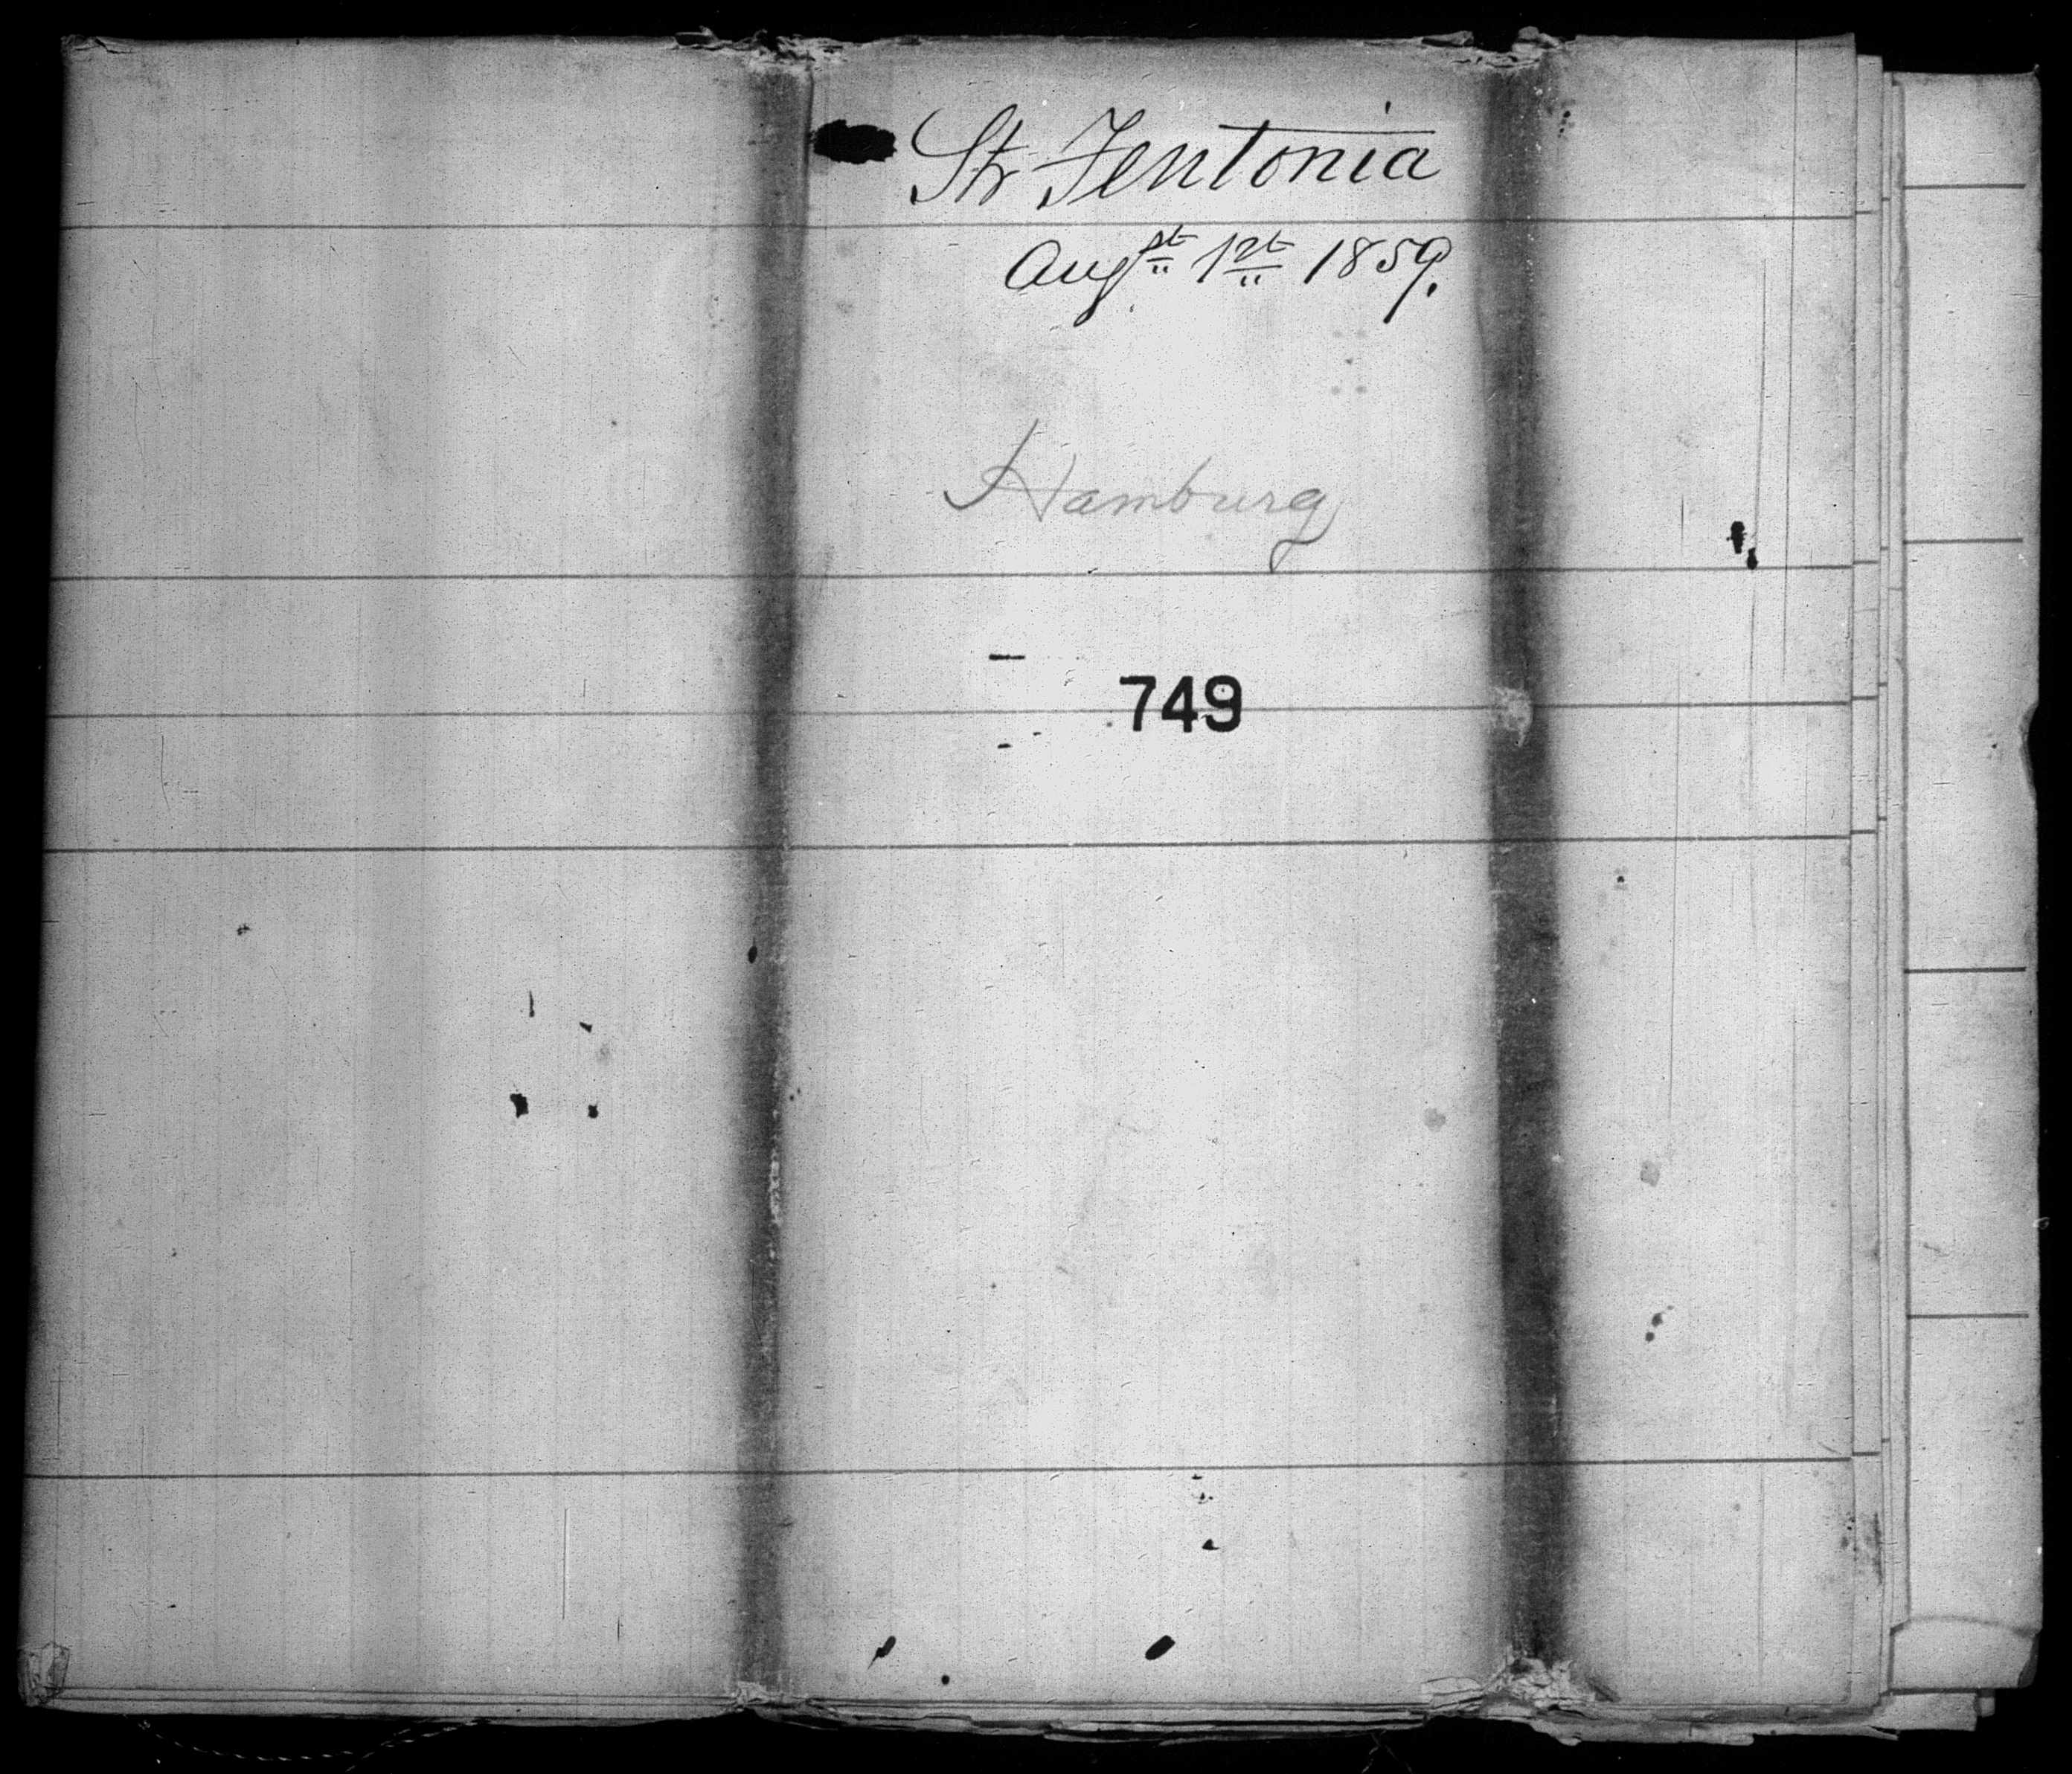 Str Teutonia
Augst 1st 1859.
Hamburg
749